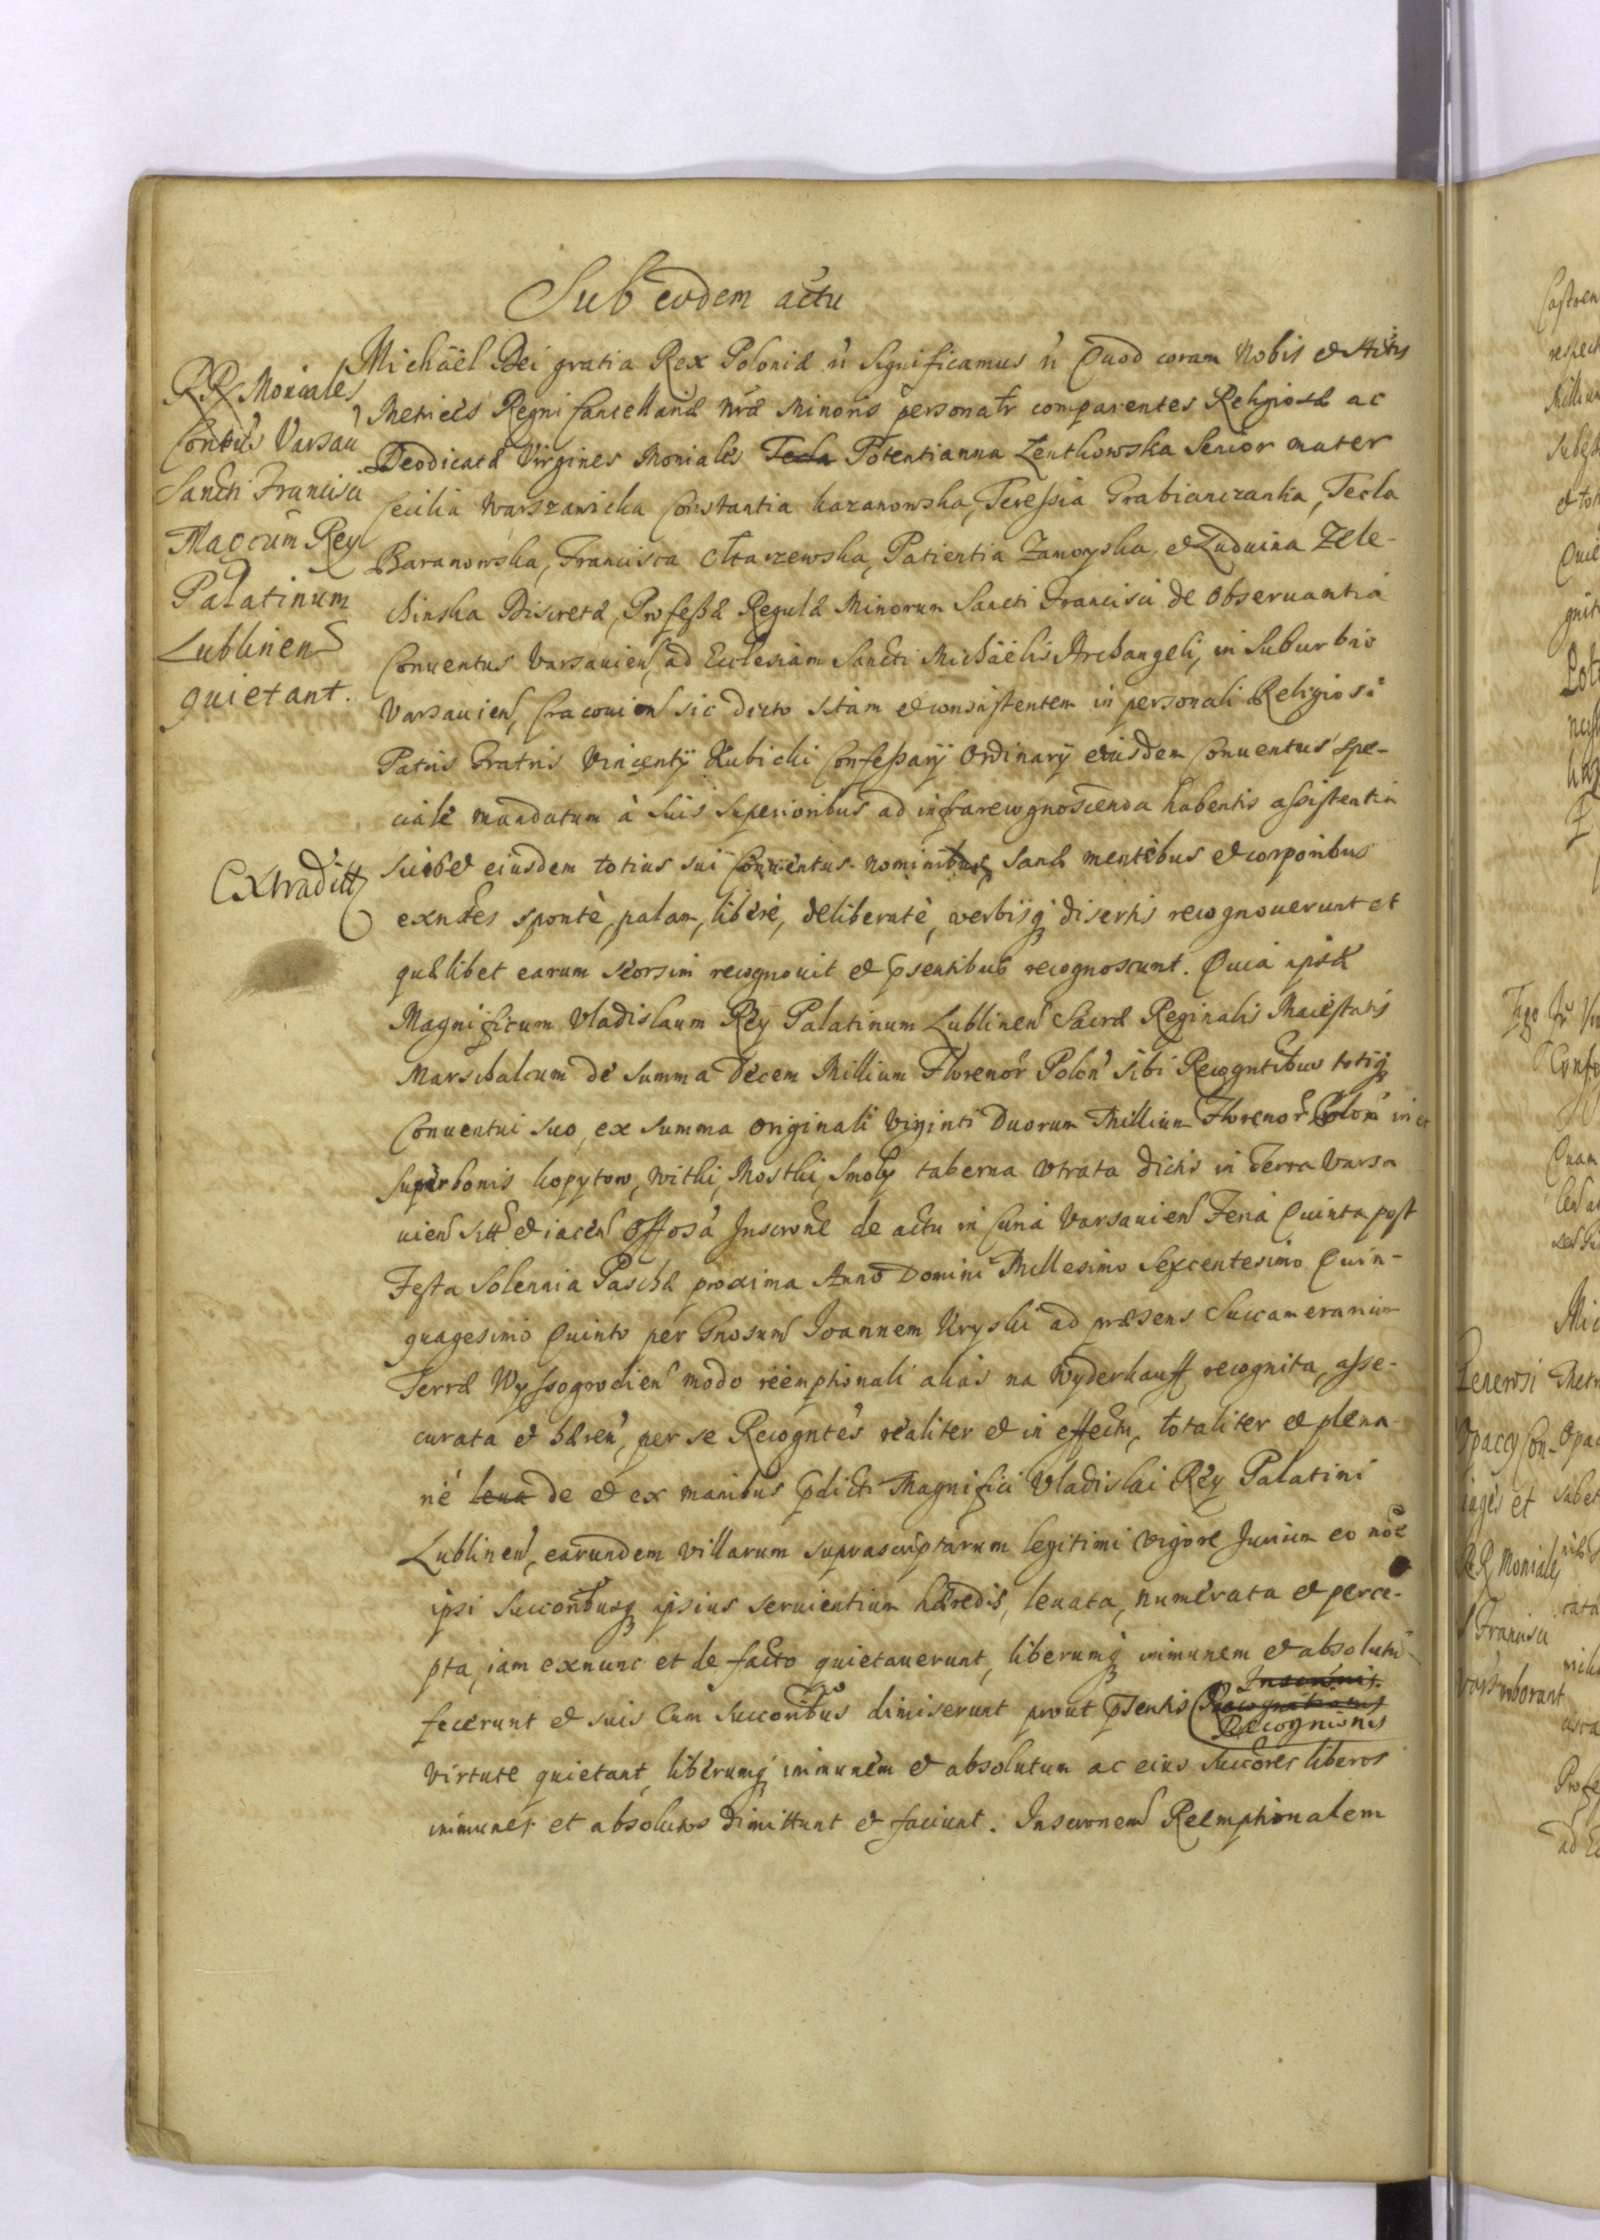 Sub eodem actu
R R Moniales
Contus Varsau
Sancti Francisci
Magcum Rey
Palatinum
Lublinens
quietant.
Extraditt
Michaël Dei gratia Rex Poloniæ ñ Significamus ñ Quod coram Nobis et Actis
Metrices Regni Cancellariæ Nræ Minoris personalr comparentes Religiosæ ac
Deodicatæ Virgines Moniales Tecla Potentianna Zentkowska Senior mater
Cecilia Warszawicka Constantia kazanowska, Teressia Grabianczanka, Tecla
Baranowska, Francisca Ołtarzewska, Patientia Zamoyska, et Luduina Zele-
chinska Discretæ, Professæ Regulæ Minorum Sancti Francisci de Obseruantia
Conuentus Varsauien, ad Ecclesiam Sancti Michäelis Archangeli, in Suburbio
Varsauien, Cracouien sic dicto sitam et consistentem in personali Religiosi
Patris Fratris Vincentÿ Kubicki Confessarÿ Ordinarÿ eiusdem Conuentus spe-
ciale mandatum à suis Superioribus ad infrarecognoscenda habentis assistentia
suiset eiusdem totius sui Conuentus nominibus, sanæ mentibus et corporibus
exntes spontè, palam, liberè, deliberatè, verbisq disertis recognouerunt et
quælibet earum seorsim recognouit et psentibus recognoscunt. Quia ipsæ
Magnificum Vladislaum Rey Palatinum Lublinen Sacræ Reginalis Maiestatis
Marschalcum de summa Decem Millium Florenor Polon sibi Recogntibus totiq
Conuentui suo, ex summa originali viginti Duorum Millium Florenor Polon in et
super bonis kopytow, Witki, Mostki, Smoły taberna Vtrata dictis in Terra Varsa
uien sitt et iacen Offosa Inscrone de actu in Curia Varsauien Feria Quinta post
Festa Solennia Paschæ proxima Anno Domini Millesimo Sexcentesimo Quin-
quagesimo Quinto per Gnosum Joannem Kryski ad præsens Succamerarium
Terræ Wyssogrodien modo reemptionali alias na wyderkauff recognita, asse-
curata et hæren, per se Recogntes realiter et in effectu, totaliter et plena-
riè leua de et ex manibus pdicti Magnifici Vladislai Rey Palatini
Lublinen, earundem villarum suprascriptarum legitimi vigore Jurium eo nõe
ipsi Succoribusq ipsius seruientium hæredis, leuata, numerata et perce-
pta, iam exnunc et de facto quietauerunt, liberumq immunem et absolutu
fecerunt et suis cum Succoribus dimiserunt prout psentis Inscronis Recognitionis Recognionis
virtute quietant, liberumq immunem et absolutum ac eius Succores liberos
immunes et absolutos dimittunt et faciunt. Inscronem Reemptionalem